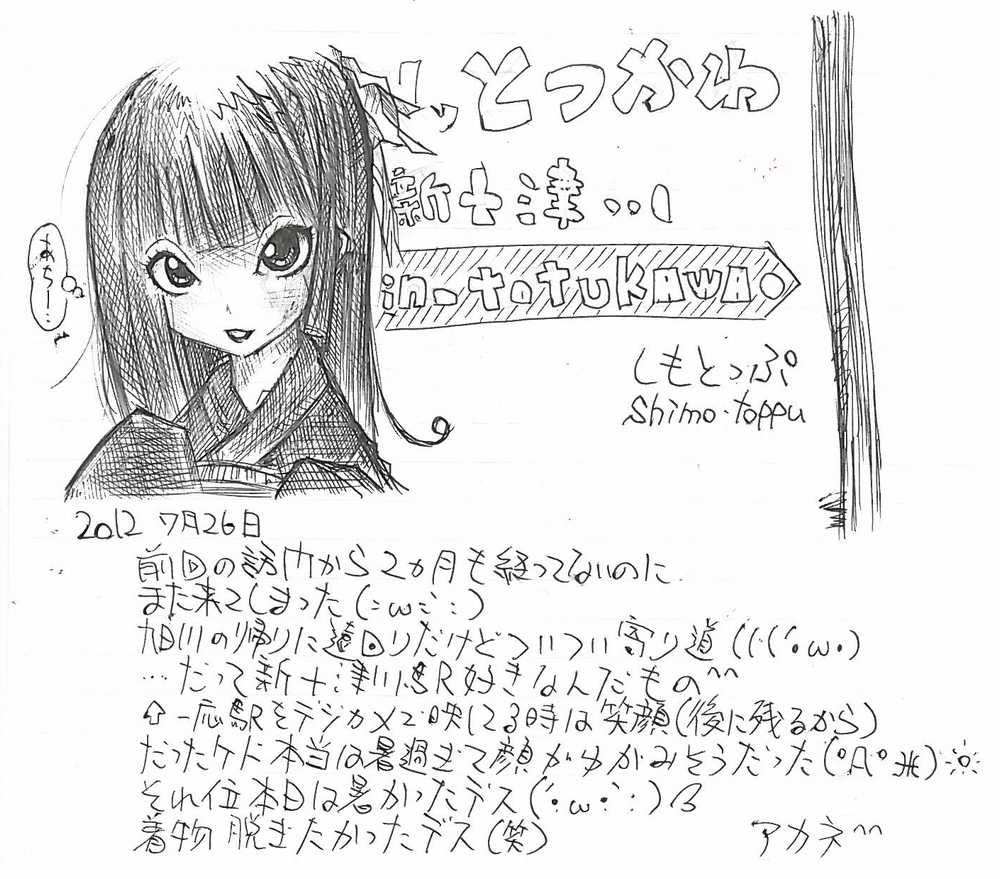 しんとつかわ
新十津
in-totukAWA
しもとっぷ
shimo.toppu
あちー…
2012 7月26日
前回の訪問から2ヵ月も経ってないのに
また来てしまった(:ω;`:)
旭川の帰りに遠回りだけどついつい寄り道(((´・ω・)
…だって新十津川駅好きなんだもの^^
⇧一応駅をデジカメで映してる時は笑顔(後に残るから)
だったケド本当は暑過ぎて顔がゆがみそうだった(゜Д゜;)
それ位本日は暑かったデス(´・ω・`:)
着物脱ぎたかったデス(笑)
アカネ^^